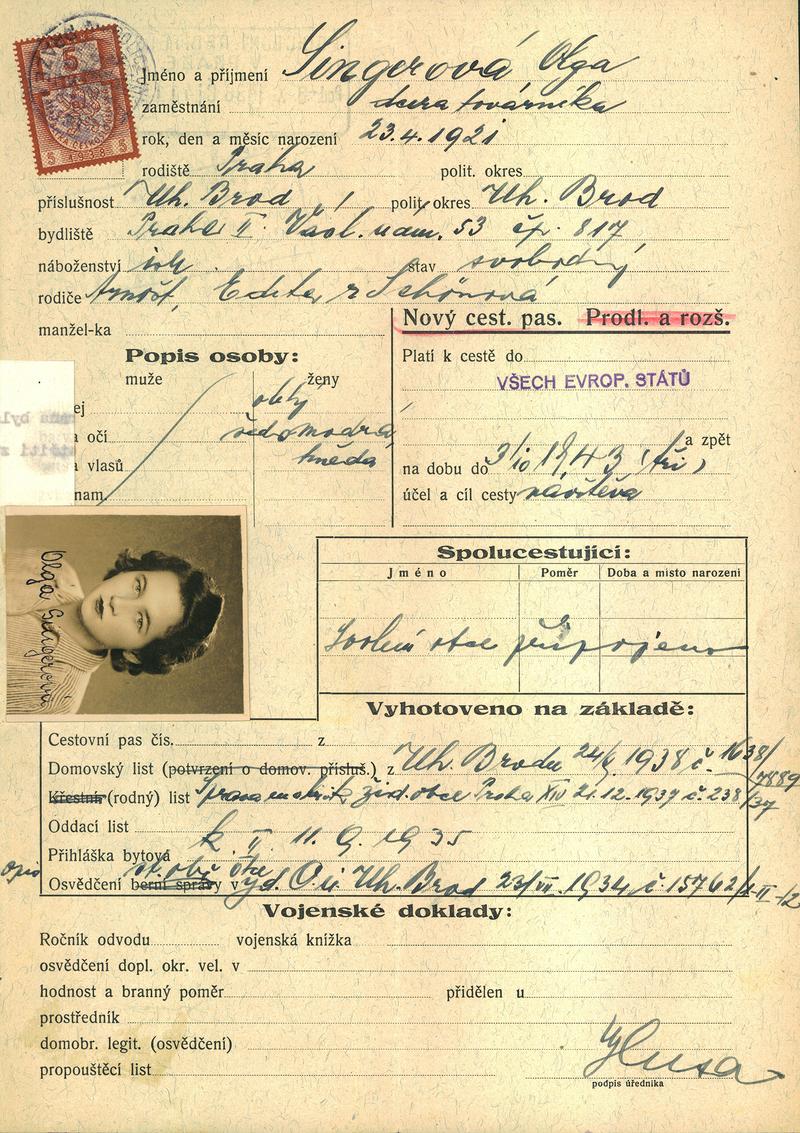 5
5 1938 5
Jméno a příjmení Singerová Olga
zaměstnání dcera továrníka
rok, den a měsíc narození 23.4.1921
rodiště Praha polit. okres
příslušnost Uh. Brod polit. okres Uh. Brod
bydliště Praha II. Václ. nám. 53 čp. 817
náboženství stav svobodný
rodiče Arnošt, Edita r Schönová
manžel-ka
Nový cest. pas. Prodl. a rozš.
Popis osoby:
Platí k cestě do
muže ženy
VŠECH EVROP. STÁTŮ
ej oblý
a očí šedomodrá
a zpět
a vlasů hnědá
na dobu do 3/10 1943 (tři)
nam.
účel a cíl cesty návštěva
Olga Singerová
Spolucestující:
Jméno Poměr Doba a místo narození
Svolení otce připojeno
Vyhotoveno na základě:
Cestovní pas čís. z
Domovský list (potvrzení o domov. přísluš.) z Uh. Brodu 1938 č. 1638/
7889
Křestní (rodný) list Správa matrik žid. obce Praha XIV 21.12.1937 č. 238/37
Oddací list
Přihláška bytová k. II. 11.9.1935
opis st. obč. otce
Osvědčení berní správy v Uh. Brod 23/VII. 1934 č. 15762/
Vojenské doklady:
Ročník odvodu vojenská knížka
osvědčení dopl. okr. vel. v
hodnost a branný poměr přidělen u
prostředník
domobr. legit. (osvědčení)
propouštěcí list
Husa
podpis úředníka